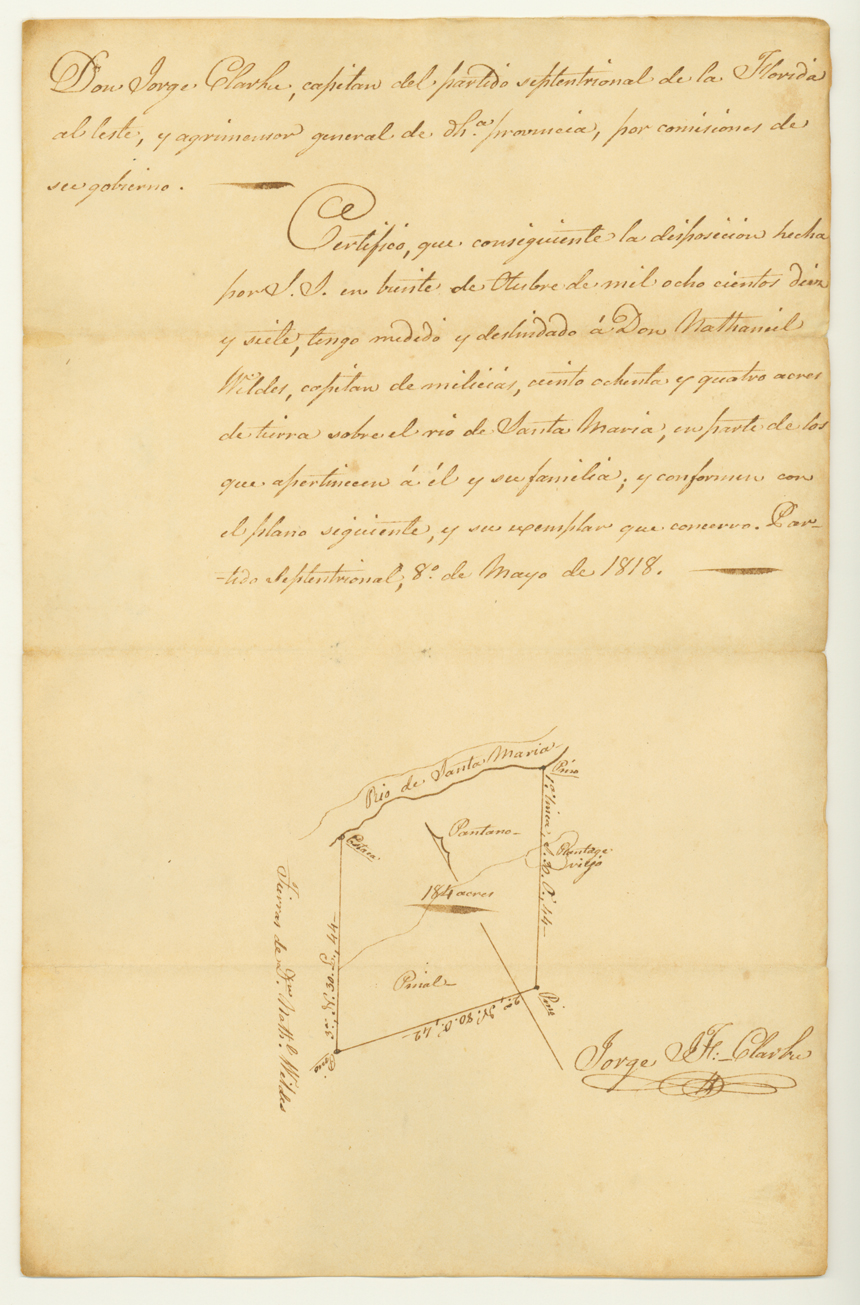 Don Jorge Clarke, capitan del partido septentrional de la Florida
al leste, y agrimensor general de dh.ª provincia, por comisiones de
su gobierno.
Certifico, que consiguiente la disposicion hecha
por S. S. en beinte de Otubre de mil ocho cientos diez
y siete, tengo medido y deslindado á Don Nathaniel
Wildes, capitan de milicias, ciento ochenta y quatro acres
de tierra sobre el rio de Santa Maria, en parte de los
que apertinecen á él y su familia; y conformen con
el plano siguiente, y su exemplar que concervo. Par-
-tido Septentrional, 8º de Mayo de 1818.
Rio de Santa Maria
Pino
Estaca
Pantano
Plantage
viejo
1ª linea, S. 2. O., 44
184 acres
Pinal
Pino
2ª, N. 80. O., 42
Pino
Tierras de Dn. Nath.l Wildes
Jorge J. F. Clarke